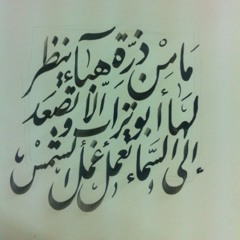 مَا مِنْ ذرّة هبآءٍ ينظر
لهَا أبو تراب إلّا وتصْعَد
إلى السَّماءِ تعمل عَمل الشّمْس